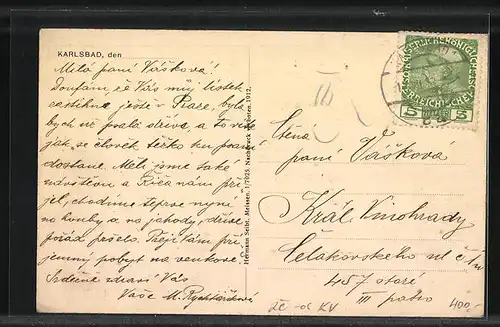 KARLSBAD, den
Milá paní Vášková!
Doufám, že Vás můj lístek
zastihne ještě v Praze, byla
bych už psala dříve, a to víte
jak se člověk těžko ku psaní
dostane. Měli jsme také
návštěvu a Fričа nám při-
jel, chodíme teprve nyní
na houby a na jahody, dříve
pořád pršelo. Přeji Vám pří-
jemný pobyt na venkově.
Srdečně zdraví Vás
Vaše M.
Hermann Seibt, Meissen, 1/7925, Nachdruck verboten, 1912.
KAISERLICH KÖNIGLICHE
ÖSTERREICHISCHE POST
5 5
Ctěná
paní Vášková
Král. Vinohrady
Čelakovského ul. č.
457 staré
III patro
400,-